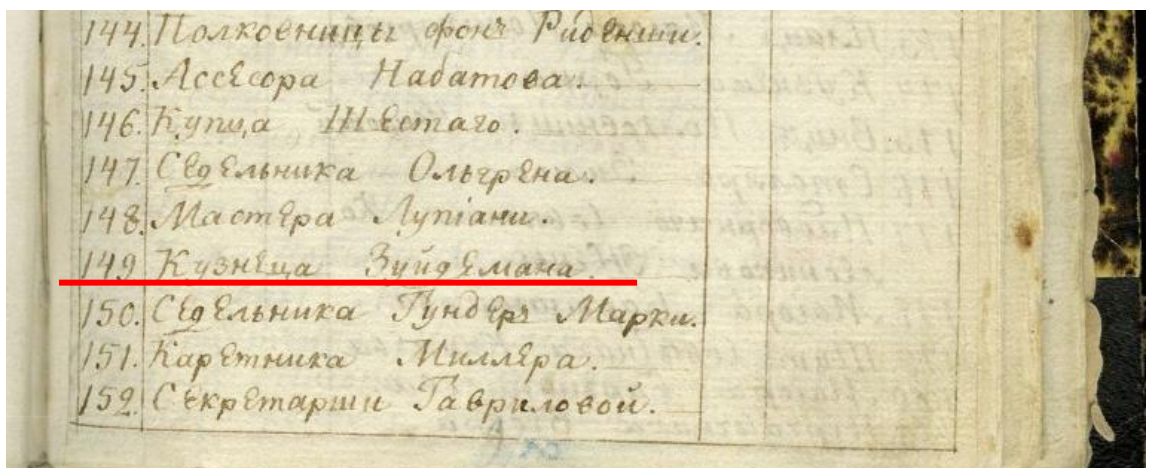 144. Полковницы фонъ Ридении.
145. Ассесора Набатова.
146. Купца Шестаго.
147. Седельника Ольгрена.
148. Мастера Лупіани.
149 Кузнеца Зуйдемана.
150. Седельника Гундеръ Марки.
151. Каретника Миллера.
152. Секретарши Гавриловой.